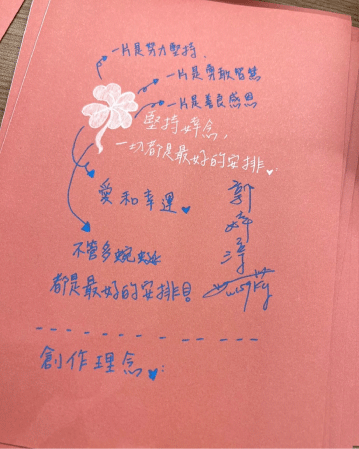 一片是努力堅持、
一片是勇敢智慧
一片是善良感恩
堅持信念,
一切都是最好的安排.
愛和幸運
郭
婷
不管多蜿蜒
都是最好的安排
創作理念: